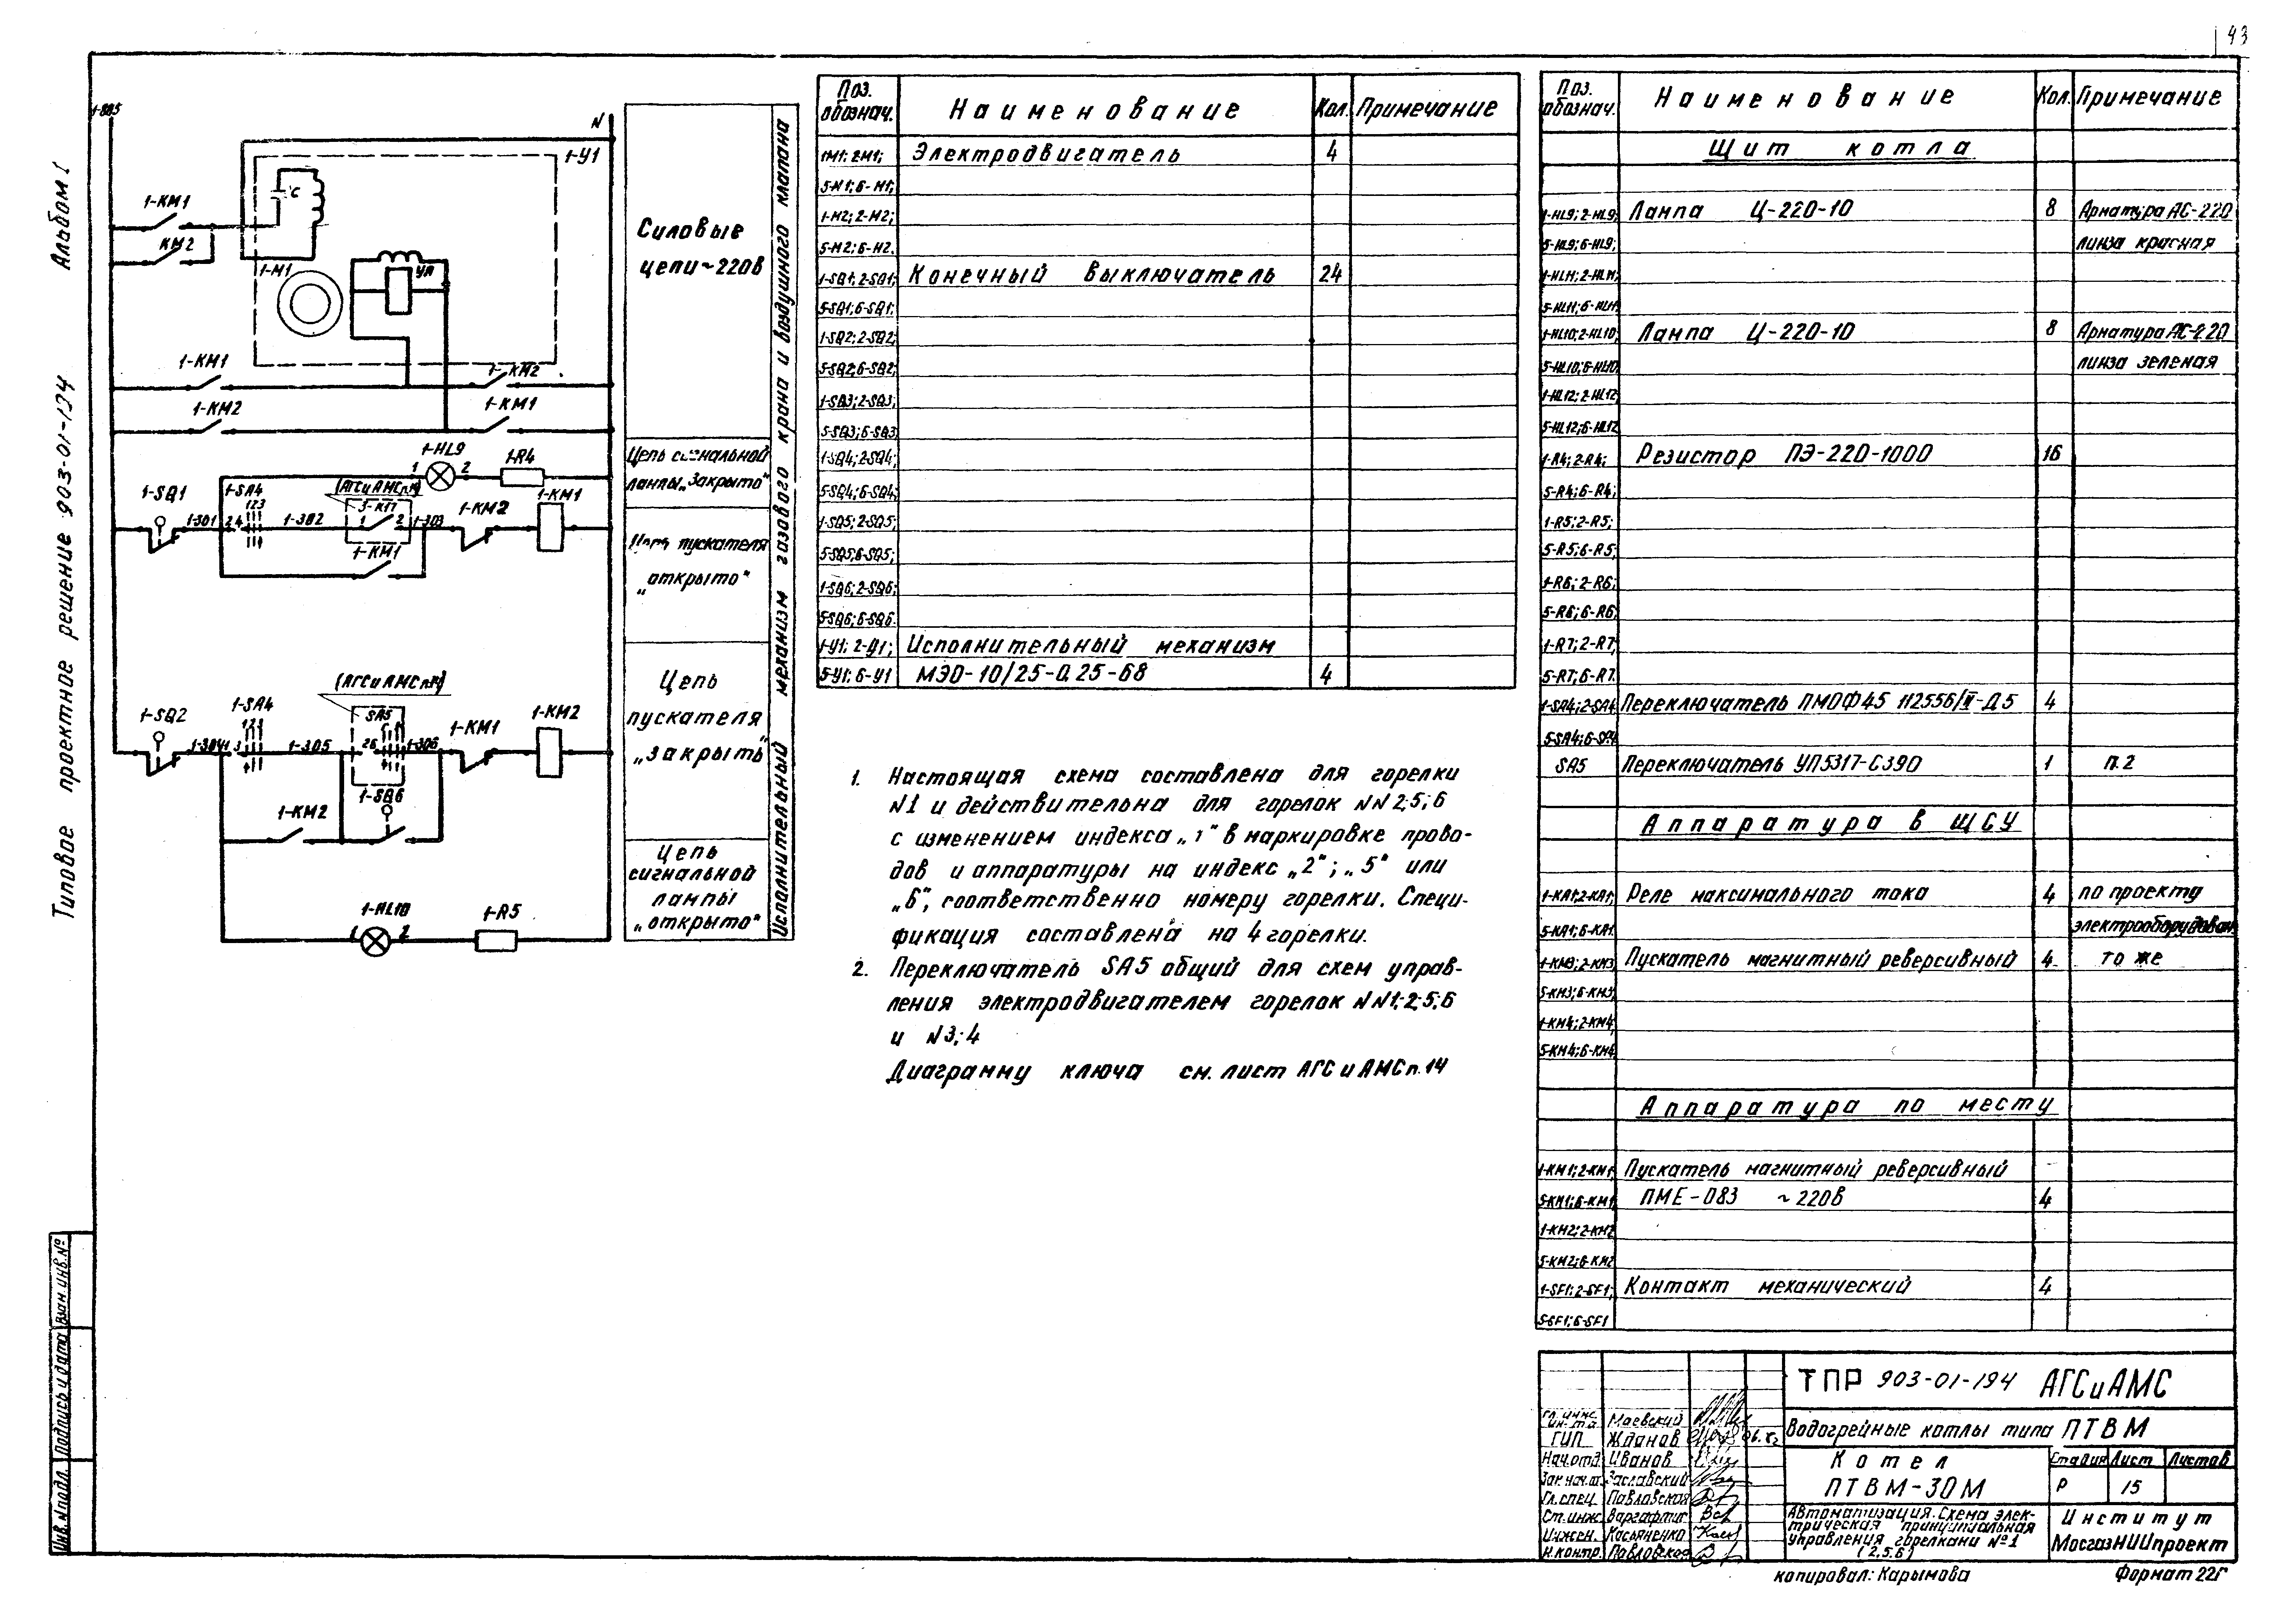 43
Альбом I
Типовое проектное решение 903-01-194
Взам. инв.№
Подпись и дата
Инв.№ подл.
1-885
N
1-У1
С
1-КМ1
КМ2
1-М1
УП
1-КМ1
1-КМ2
1-КМ2
1-КМ1
1-HL9
1 2
1-R4
1-SQ1
1-SA4
(АГСиАМСл.14)
1-КМ2
1-КМ1
1-301
24
123
1-302
1 2
1-303
1-КМ1
(АГСиАМСл.14)
1-SQ2
1-SA4
SA5
1-КМ1
1-КМ2
3
1-305
26
1-306
1-SQ6
1-КМ2
1-HL10
1 2
1-R5
Силовые
цепи ~220в
Цепь сигнальной
лампы „Закрыто"
Цепь пускателя
„открыто"
Цепь
пускателя
„Закрыть"
Цепь
сигнальной
лампы
„открыто"
Исполнительный механизм газового крана и воздушного клапана
Поз. обознач. Наименование Кол. Примечание
1М1; 2М1; Электродвигатель 4
5-М1; 6-М1;
1-М2; 2-М2;
5-М2; 6-М2.
1-SQ1; 2-SQ1; Конечный выключатель 24
5-SQ1; 6-SQ1;
1-SQ2; 2-SQ2;
5-SQ2; 6-SQ2;
1-SQ3; 2-SQ3;
5-SQ3; 6-SQ3
1-SQ4; 2-SQ4;
5-SQ4; 6-SQ4;
1-SQ5; 2-SQ5;
5-SQ5; 6-SQ5;
1-SQ6; 2-SQ6;
5-SQ6; 6-SQ6.
1-У1; 2-У1; Исполнительный механизм
5-У1; 6-У1 МЭО-10/25-0.25-68 4
1. Настоящая схема составлена для горелки
N1 и действительна для горелок NN 2;5;6
с изменением индекса „1" в маркировке прово-
дов и аппаратуры на индекс „2"; „5" или
„6", соответственно номеру горелки. Специ-
фикация составлена на 4 горелки.
2. Переключатель SA5 общий для схем управ-
ления электродвигателем горелок NN1;2;5;6
и N3;4
Диаграмму ключа см. лист АГСиАМСл.14
Поз. обознач. Наименование Кол. Примечание
Щит котла
1-HL9; 2-HL9; Лампа Ц-220-10 8 Арматура АС-220
5-HL9; 6-HL9; линза красная
1-HL11; 2-HL11;
5-HL11; 6-HL11
1-HL10; 2-HL10; Лампа Ц-220-10 8 Арматура АС-220
5-HL10; 6-HL10 линза зеленая
1-HL12; 2-HL12
5-HL12; 6-HL12
1-R4; 2-R4; Резистор ПЭ-220-1000 16
5-R4; 6-R4;
1-R5; 2-R5;
5-R5; 6-R5;
1-R6; 2-R6;
5-R6; 6-R6;
1-R7; 2-R7;
5-R7; 6-R7.
1-SA4; 2-SA4 Переключатель ПМОФ45 112556/II-Д5 4
5-SA4; 6-SA4
SA5 Переключатель УП5317-С390 1 п.2
Аппаратура в ЩСУ
1-КА1; 2-КА1; Реле максимального тока 4 по проекту
5-КА1; 6-КА1. электрооборудован.
1-КМ3; 2-КМ3 Пускатель магнитный реверсивный 4 то же
5-КМ3; 6-КМ3
1-КМ4; 2-КМ4
5-КМ4; 6-КМ4
Аппаратура по месту
1-КМ1; 2-КМ1 Пускатель магнитный реверсивный
5-КМ1; 6-КМ1 ПМЕ-083 ~220в 4
1-КМ2; 2-КМ2
5-КМ2; 6-КМ2
1-SF1; 2-SF1; Контакт механический 4
5-SF1; 6-SF1
ТПР 903-01-194 АГСиАМС
Гл. инж. ин-та Маевский
ГИП Жданов
Нач.отд. Иванов
Зам.нач.от. Заславский
Гл.спец. Павловская
Ст.инж. Варгафтиг
Инжен. Касьяненко
Н.контр. Павловская
Водогрейные котлы типа ПТВМ
Котел
ПТВМ-30М
Стадия Лист Листов
Р 15
Автоматизация. Схема элек-
трическая принципиальная
управления горелками №1
(2,5,6)
Институт
МосгазНИИпроект
копировал: Карымова
Формат 22Г